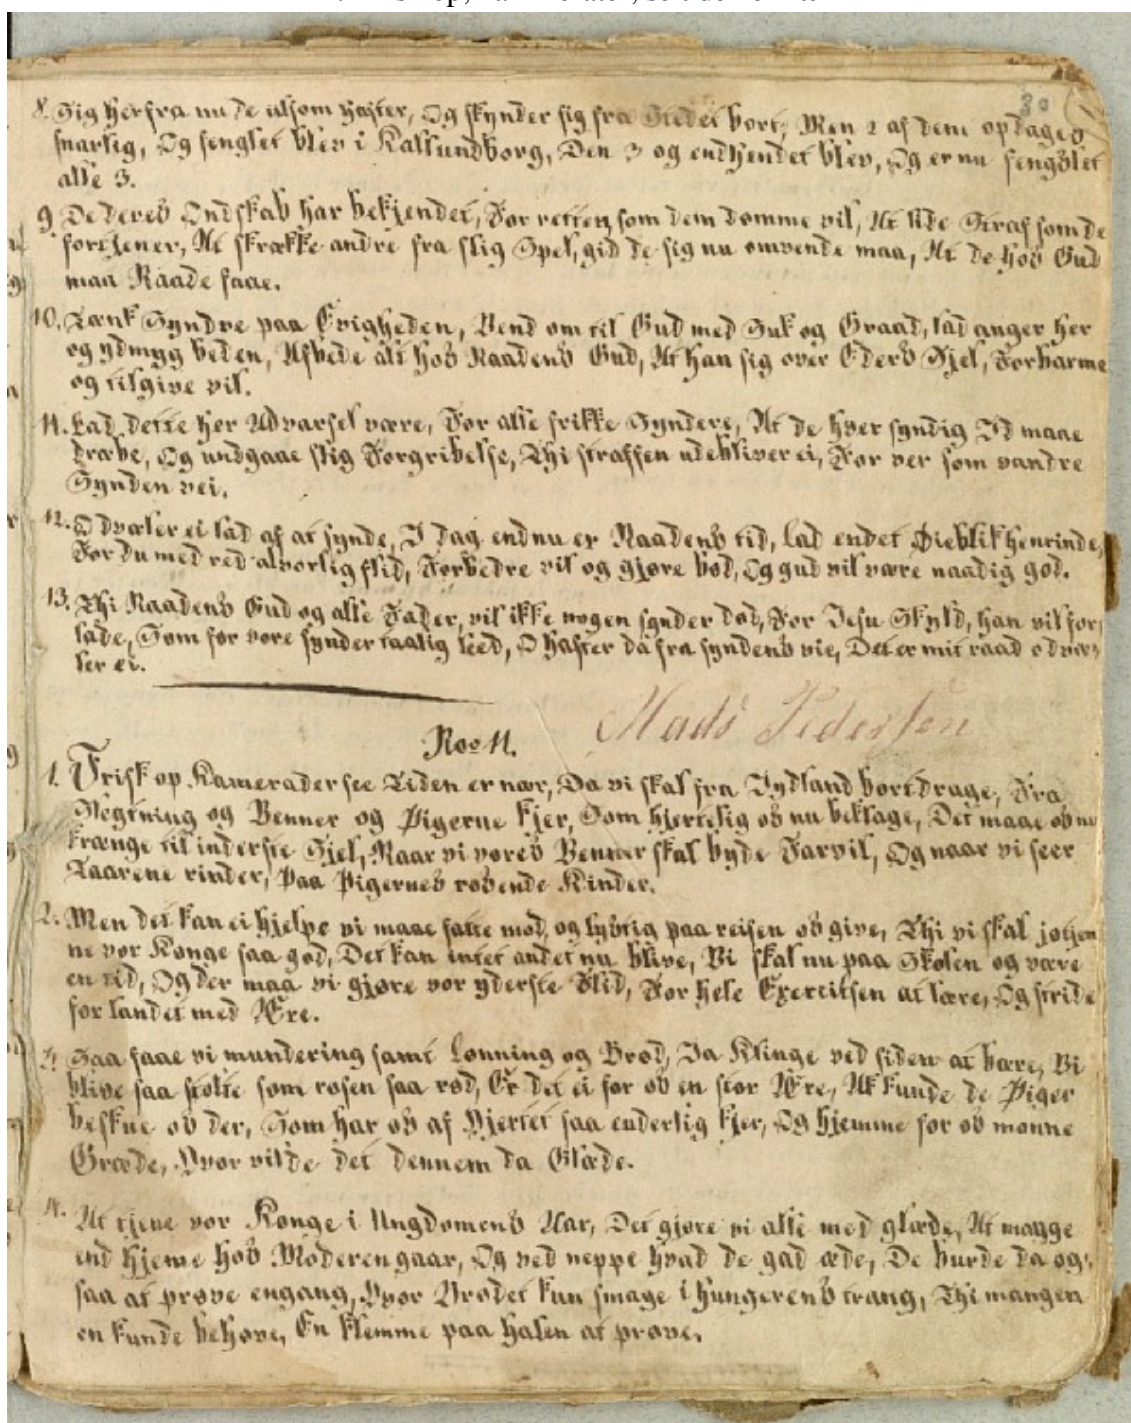 30
8. Sig herfra nu de alsom haster, Og skynder sig fra Stedet bort, Men 2 af dem opdages
snarlig, Og fengslet blev i Kallundborg, Den 3 og endhendet blev, Og er nu fengslet
alle 3.
9. De deres Ondskab har bekjendet, For retten som dem dømme vil, At lide Straf som de
fortjener, At skrække andre fra slig Spel, gid de sig nu omvende maa, At de hos Gud
maa Naade faae.
10. Tænk Syndre paa Evigheden, Vend om til Gud med Suk og Graad, lad anger her
og ydmyg beden, Afbede alt hos Naadens Gud, At han sig over Eders Sjel, Forbarme
og tilgive vil.
11. Lad dette her Advarsel være, For alle frikke Syndere, At de hver syndig Id maae
dræbe, Og undgaae slig Forgribelse, Thi straffen udebliver ei, For ver som vandre
Synden vei.
12. O dvæler ei lad af at synde, I dag endnu er Naadens tid, lad endet Øieblik henrinde,
For du med red alvorlig flid, Forbedre vil og gjøre bod, Og gud vil være naadig god.
13. Thi Naadens Gud og alle Fader, vil ikke nogen synder død, For Jesu Skyld, han vil for,
lade, Som for vore synder taalig leed, O haster da fra syndens vie, Det er mit raad o dvæ,
ler ei.
Mads Pedersen
No 11.
1. Frisk op Kamerader see Tiden er nær, Da vi skal fra Jydland bort drage, Fra
Slegtning og Venner og Pigerne kjer, Som hjertelig os nu beklage, Det maae os nu
trænge til inderste Sjel, Naar vi vores Venner skal byde Farvil, Og naar vi seer
Taarene rinder, Paa Pigernes rosende Kinder.
2. Men det kan ei hjelpe vi maae fatte mod, og lystig paa reisen os give, Thi vi skal jo tjen
ne vor Konge saa god, Det kan intet andet nu blive, Vi skal nu paa Skolen og være
en tid, Og der maa vi gjøre vor yderste Flid, For hele Exercitsen at lære, Og stride
for landet med Ære.
3. Saa faae vi mundering samt Lønning og Brød, Ja Klinge ved siden at bære, Vi
blive saa stolte som rosen saa rød, Er det ei for os en stor Ære, At kunde de Piger
beskue os der, Som har os af Hjertet saa enderlig kjer, Og hjemme for os monne
Græde, Hvor vilde det dennem da Glæde.
4. At tjene vor Konge i Ungdomens Aar, Det gjøre vi alle med glæde, At mange
end hjeme hos Moderen gaar, Og ved neppe hvad de gad æde, De burde da og,
saa at prøve engang, Hvor Brødet kun smage i hungerens trang, Thi mangen
en kunde behøve, En klemme paa halen at prøve.